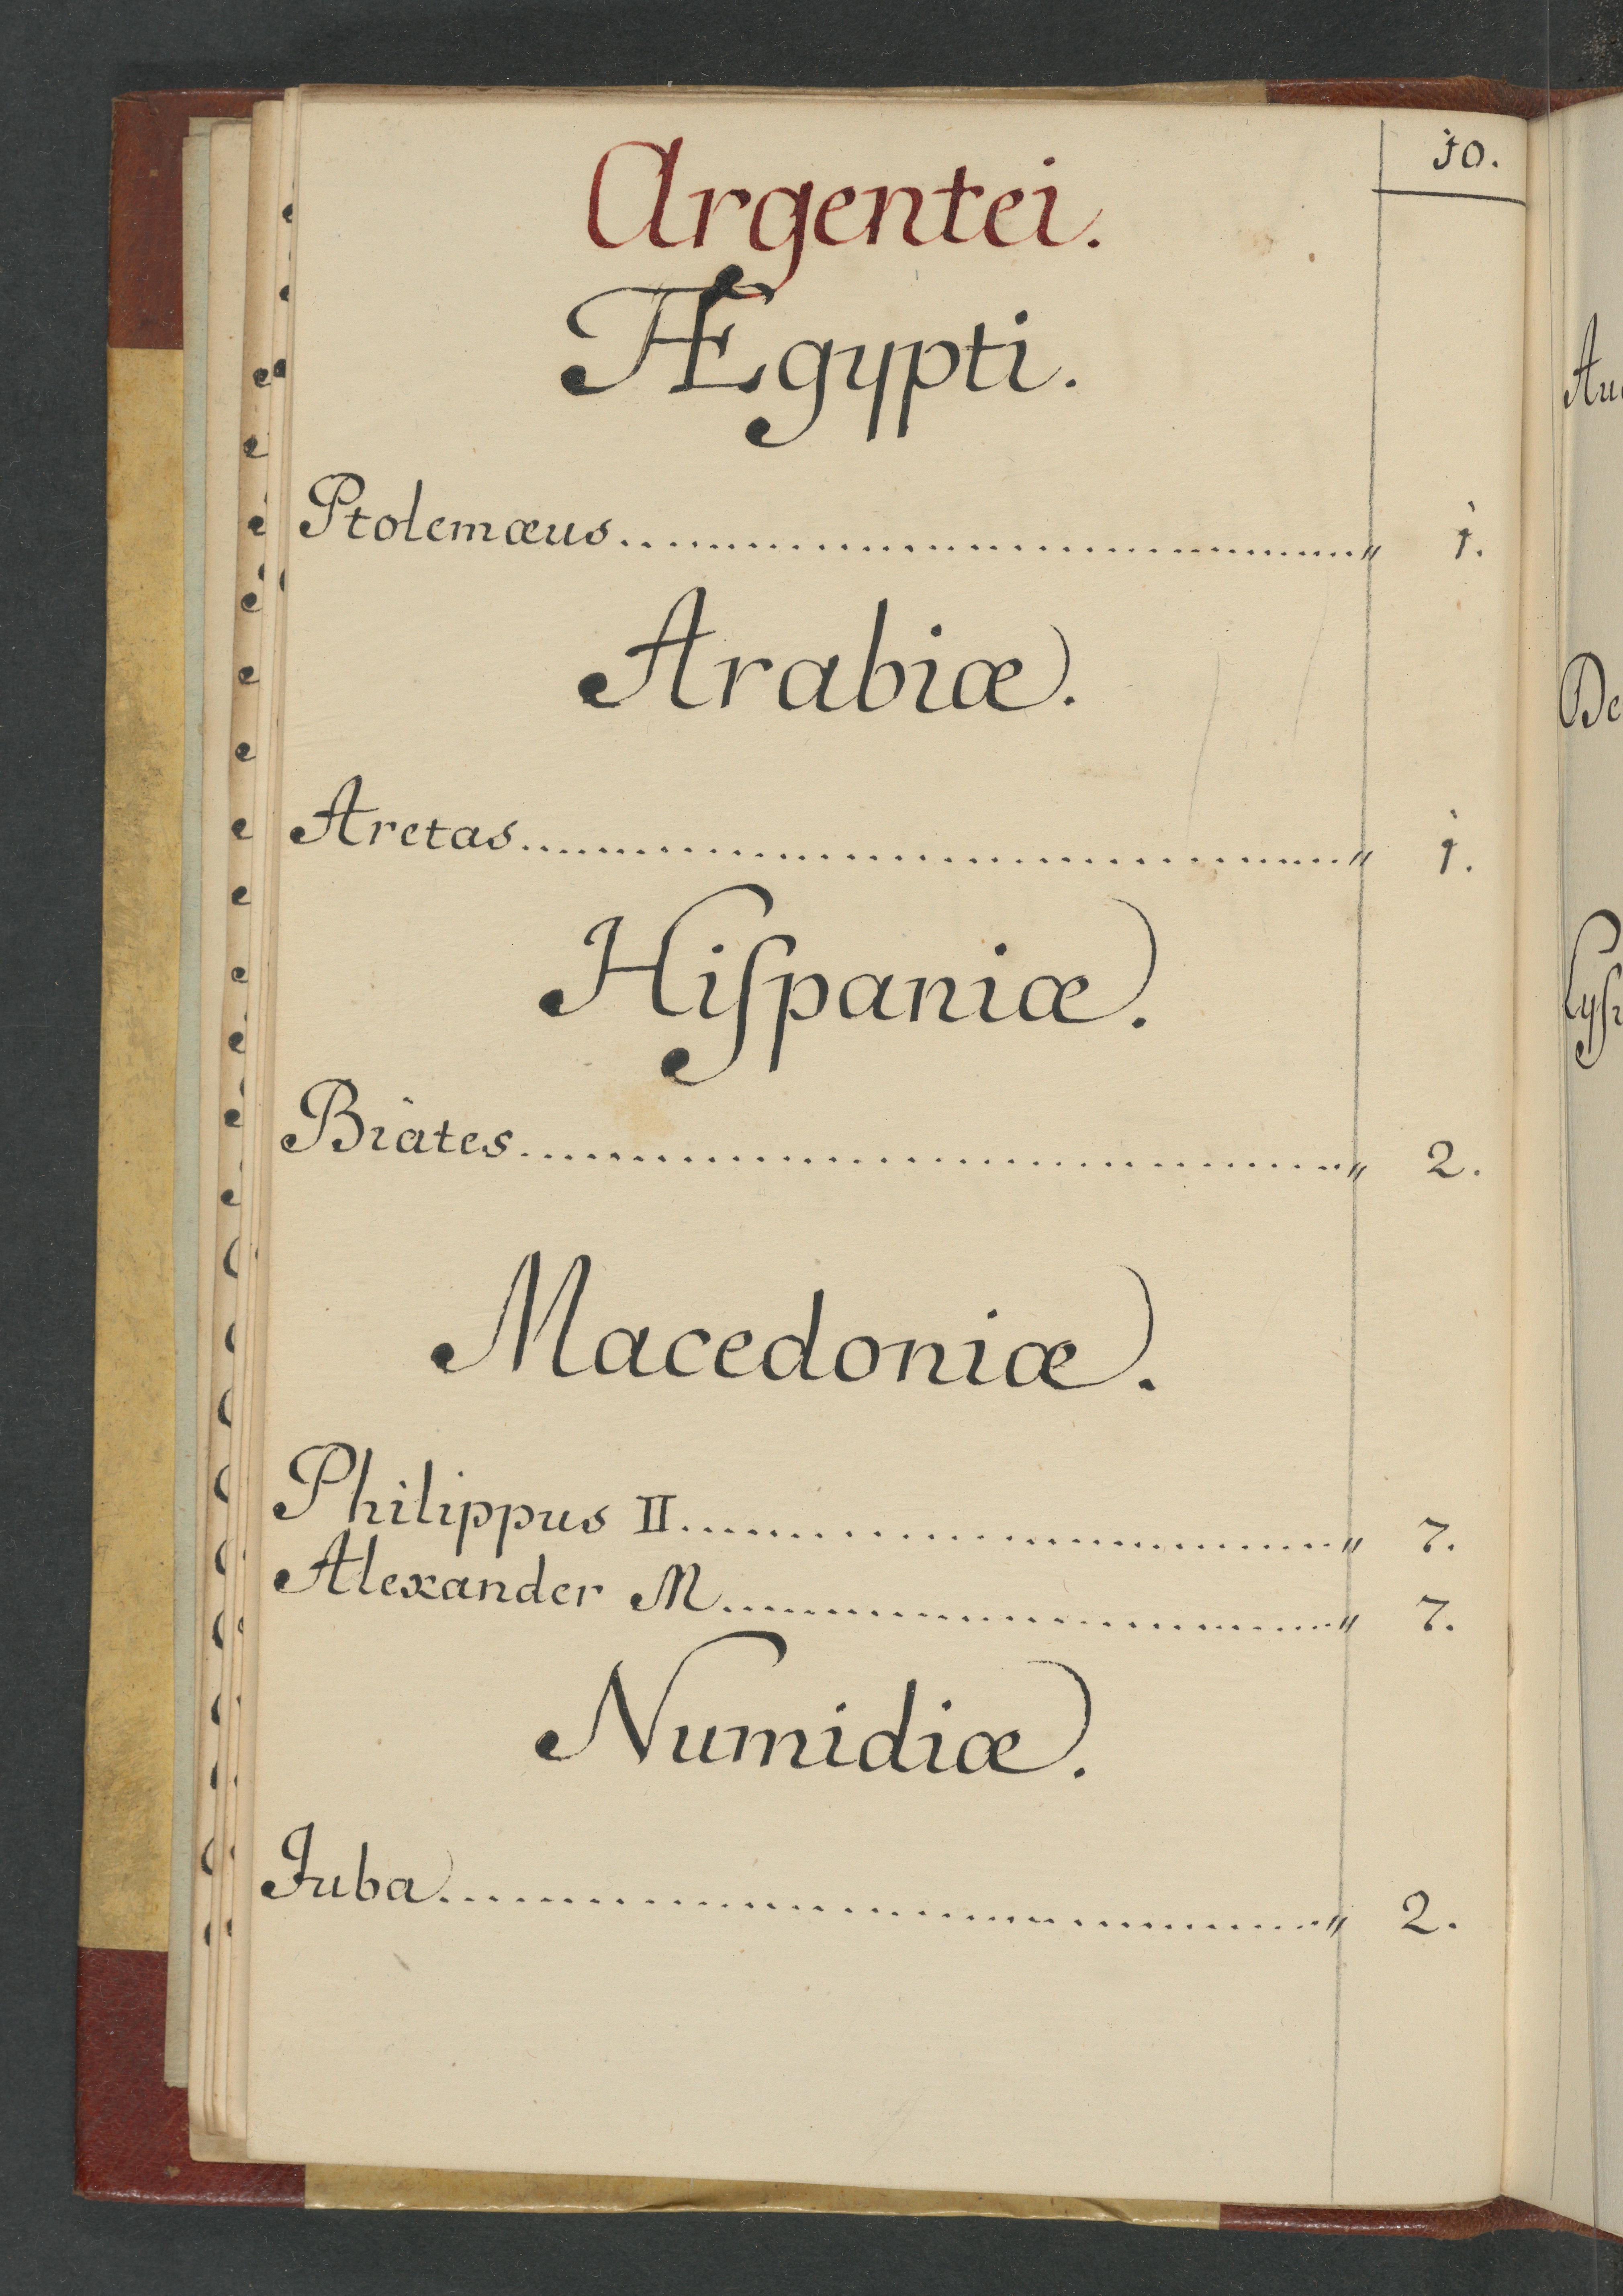 10.
Argentei.
Ægypti.
Ptolemæus....................................〃 1.
Arabiæ.
Aretas....................................〃 1.
Hiſpaniæ.
Biàtes....................................〃 2.
Macedoniæ.
Philippus II....................................〃 7.
Alexander M....................................〃 7.
Numidiæ.
Juba....................................〃 2.